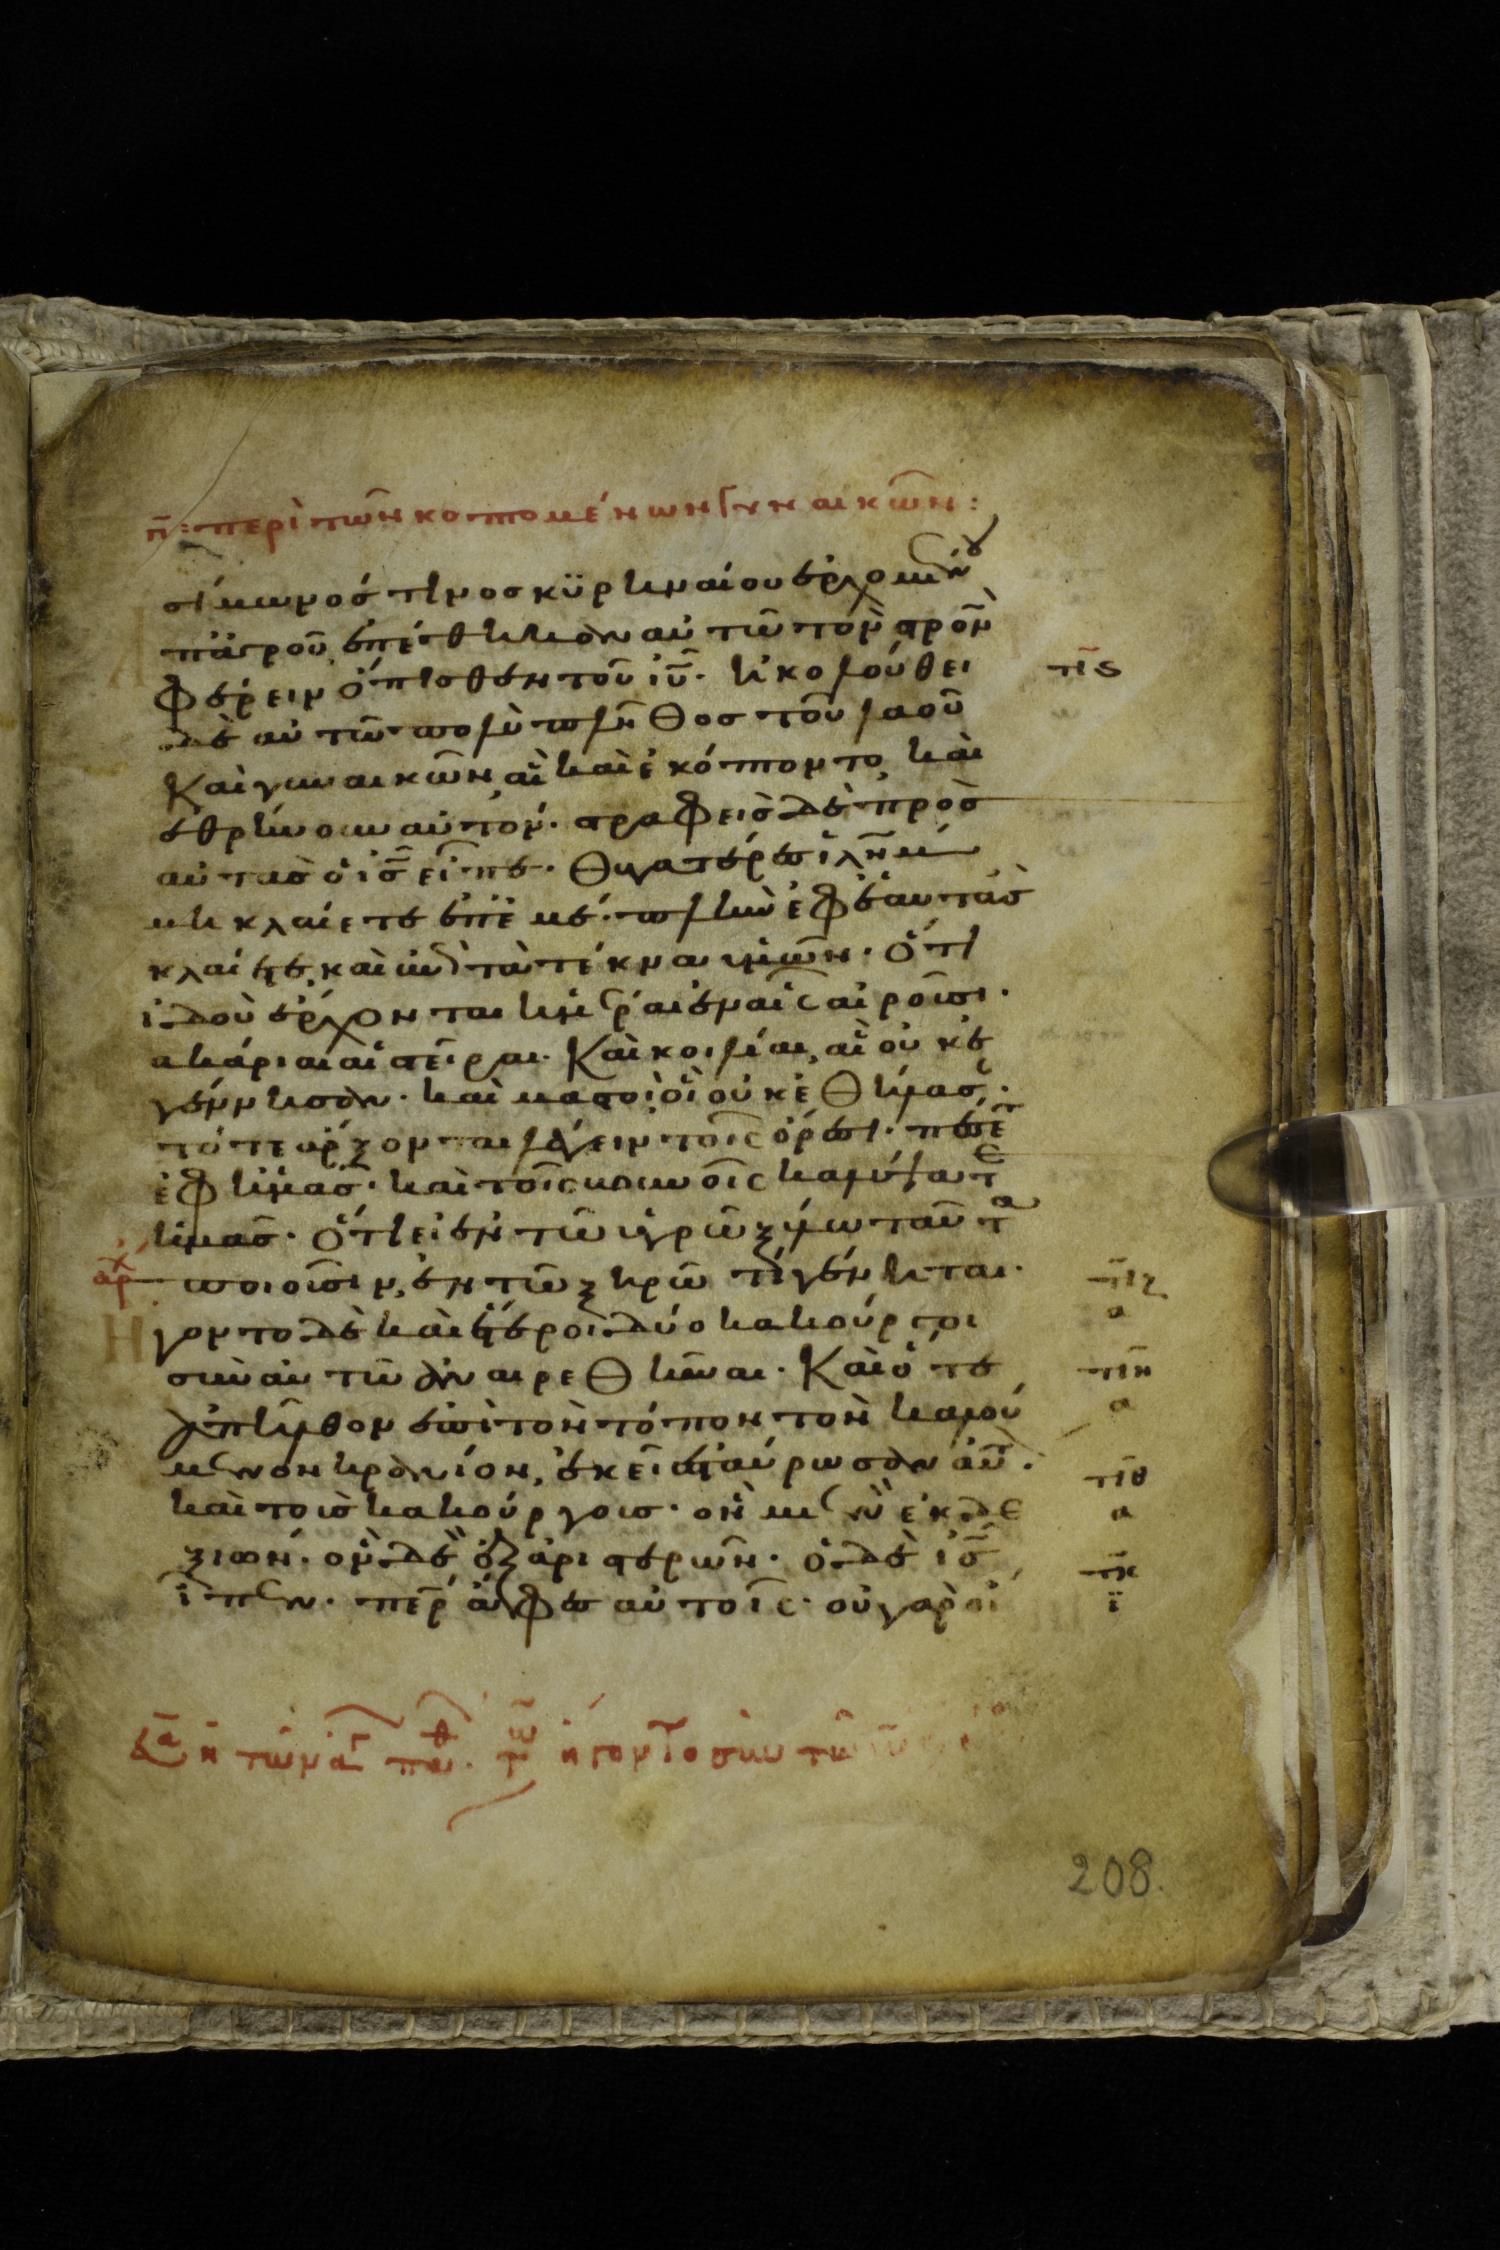 π̅: περὶ τῶν κοπτομένων γυναικῶν:
σίμωνός τινος κϋρηναίου ἐρχομένου
ἀπἀγροῦ, ἐπέθηκαν αὐτῶ τὸν στρο̅ν
φέρειν ὄπισθεν τοῦ ἰ̅υ̅. ἠκολούθει
δὲ αὐτῶ πολὺ πλῆθος τοῦ λαοῦ
καὶ γυναικῶν, αἳ καὶ ἐκόπτοντο, καὶ
ἐθρήνουν αὐτόν. στραφεὶς δὲ πρὸς
αὐτὰς ὁ ι̅ς̅ εἶπε. θυγατέρες ἰλῆμ
μὴ κλαίετε ἐπἐμέ. πλὴν ἐφἑαυτὰς
κλαίετε, καὶ ἐπὶ τὰ τέκνα ὑμῶν. ὅτι
ἰδοὺ ἔρχονται ἡμέραι ἐν αἷς αἱροῦσι.
ακάριαι αἱ στεῖραι. καὶ κοιλίαι, αἳ οὐκ ἐ
γέννησαν. καὶ μαστοὶ οἳ οὐκ ἐθήλασ̅.
τότε ἄρξονται λέγειν τοῖς ὄρεσι. πέσετε
ἐφ ἡμᾶς. καὶ τοῖς βουνοῖς καλύψατε
ἡμᾶς. ὅτι εἰ ἐν τῶ ὑγρῶ ξύλω ταῦτα
αρχ ποιοῦσιν, ἐν τῶ ξηρῶ τί γένηται.
Ηγοντο δὲ καὶ ἕτεροι δύο κακούργοι
σὺν αὐτῶ ἀναιρεθῆναι. καὶ ὅτε
ἀπῆλθον ἐπὶ τὸν τόπον τὸν καλού
μενον κρανίον, ἐκεῖ ἐσταύρωσαν αὐτ̅.
καὶ τοὺς κακούργοις. ὃν μὲν ἐκ δε
ξιῶν. ὃν δὲ ἐξ ἀριστερῶν. ὁ δὲ ι̅ς̅
ἔλεγεν. πε̅ρ ἄφες αὐτοῖς. οὐ γὰρ οἴ
τις
τιζ
α
τιη
α
τιθ
α
τκ
ϊ
ἤγοντο σὺν τῶ
208.